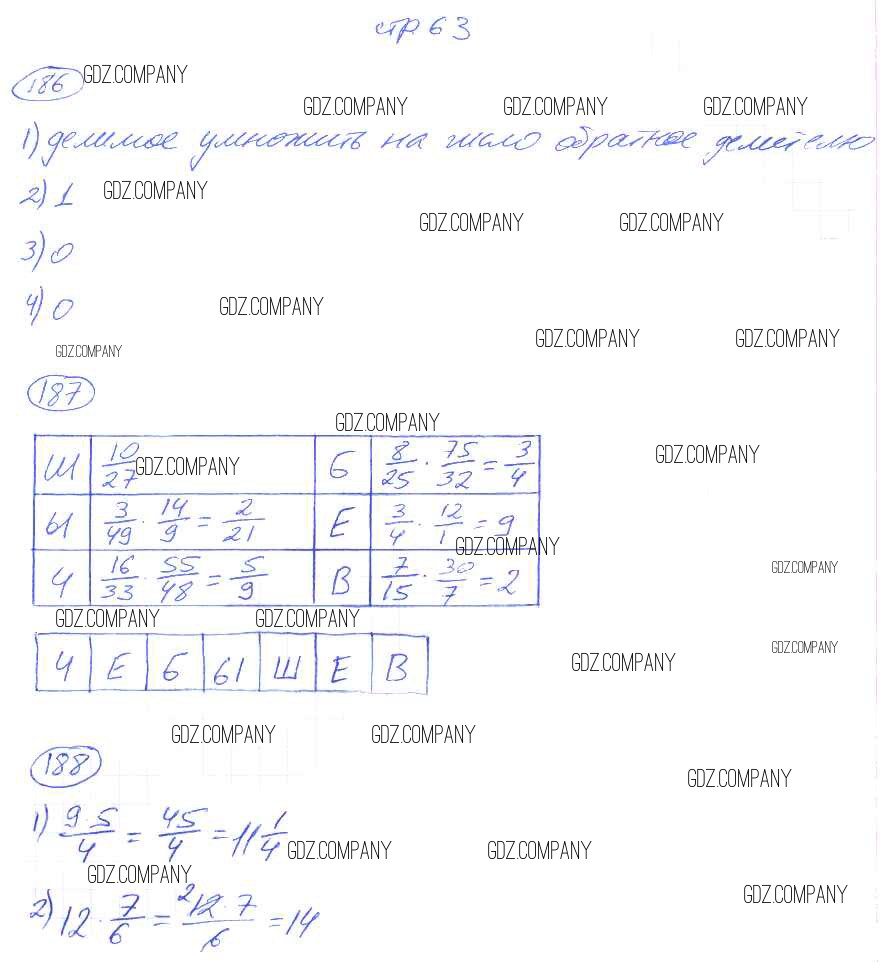 стр. 63
186 GDZ.COMPANY
GDZ.COMPANY GDZ.COMPANY GDZ.COMPANY
1) делимое умножить на число обратное делителю
2) 1 GDZ.COMPANY
GDZ.COMPANY GDZ.COMPANY
3) 0
4) 0 GDZ.COMPANY
GDZ.COMPANY GDZ.COMPANY
GDZ.COMPANY
187
GDZ.COMPANY
Ш 10/27 GDZ.COMPANY Б 8/25 · 75/32 = 3/4 GDZ.COMPANY
Ы 3/49 · 14/9 = 2/21 Е 3/4 · 12/1 = 9
GDZ.COMPANY
Ч 16/33 · 55/48 = 5/9 В 7/15 · 30/7 = 2 GDZ.COMPANY
GDZ.COMPANY GDZ.COMPANY
Ч Е Б Ы Ш Е В GDZ.COMPANY GDZ.COMPANY
GDZ.COMPANY GDZ.COMPANY
188 GDZ.COMPANY
1) 9·5/4 = 45/4 = 11 1/4
GDZ.COMPANY GDZ.COMPANY
GDZ.COMPANY GDZ.COMPANY
2) 12 · 7/6 = ²12·7/6 = 14